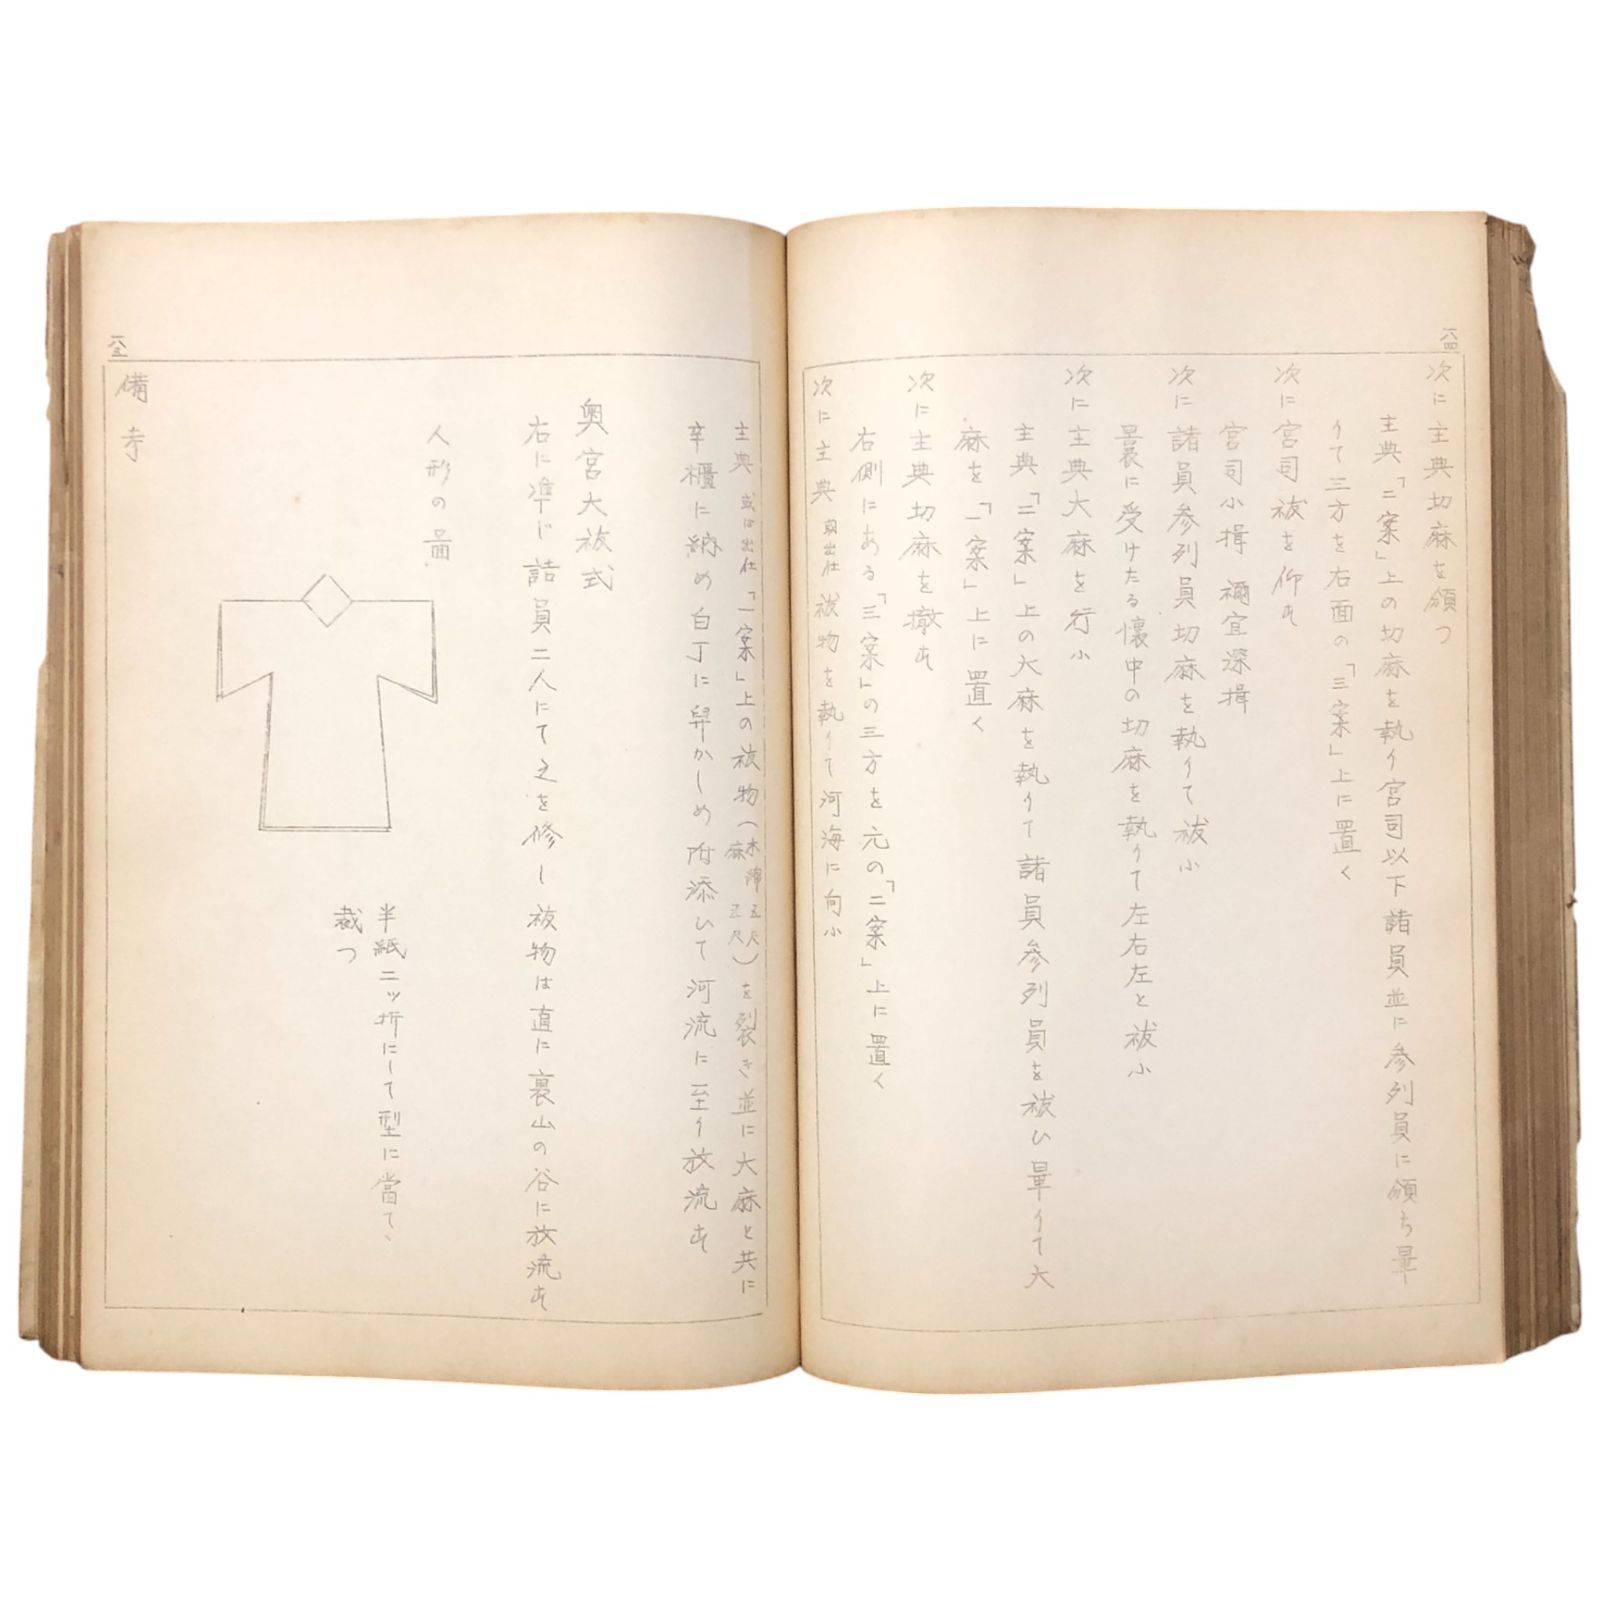 一八四
次に主典切麻を頒つ
主典「二案」上の切麻を執り宮司以下諸員並に参列員に頒ち畢
りて三方を右面の「三案」上に置く
次に宮司祓を仰す
宮司小揖 禰宜深揖
次に諸員参列員切麻を執りて祓ふ
曩に受けたる懐中の切麻を執りて左右左と祓ふ
次に主典大麻を行ふ
主典「二案」上の大麻を執りて諸員参列員を祓ひ畢りて大
麻を「一案」上に置く
次に主典切麻を撤す
右側にある「三案」の三方を元の「二案」上に置く
次に主典 出仕 祓物を執りて河海に向ふ
主典 或は出仕「一案」上の祓物(木綿五尺 麻五尺)を裂き並に大麻と共に
辛櫃に納め白丁に舁かしめ附添ひて河流に至り放流す
奥宮大祓式
右に準じ詰員二人にて之を修し祓物は直に裏山の谷に放流す
人形の圖
半紙二ッ折にして型に當て、
裁つ
備考